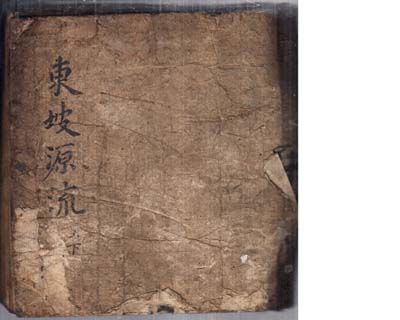 東坡源流
下